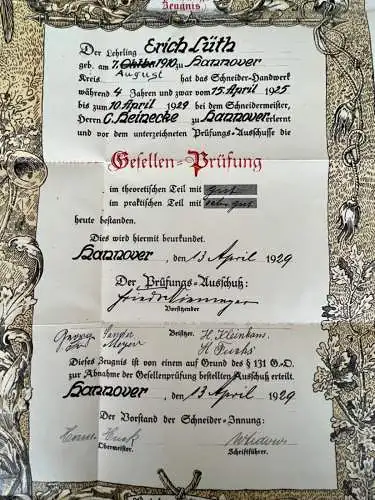 Zeugnis
Der Lehrling Erich Lüth
geb. am 7. Oktbr. 1910 zu Hannover
August
Kreis hat das Schneider-Handwerk
während 4 Jahren und zwar vom 15 April 1925
bis zum 10 April 1929 bei dem Schneidermeister,
Herrn C. Heinecke zu Hannover erlernt
und vor dem unterzeichneten Prüfungs-Ausschusse die
Gesellen-Prüfung
im theoretischen Teil mit gut
im praktischen Teil mit sehr gut
heute bestanden.
Dies wird hiermit beurkundet.
Hannover, den 13 April 1929
Der Prüfungs-Ausschuß:
Vorsitzender
Georg Beisitzer. H. Kleinhans
Meyer H. Fuchs
Dieses Zeugnis ist von einem auf Grund des § 131 G.-O.
zur Abnahme der Gesellenprüfung bestellten Ausschuß erteilt.
Hannover, den 13 April 1929
Der Vorstand der Schneider-Innung:
Obermeister. Schriftführer.